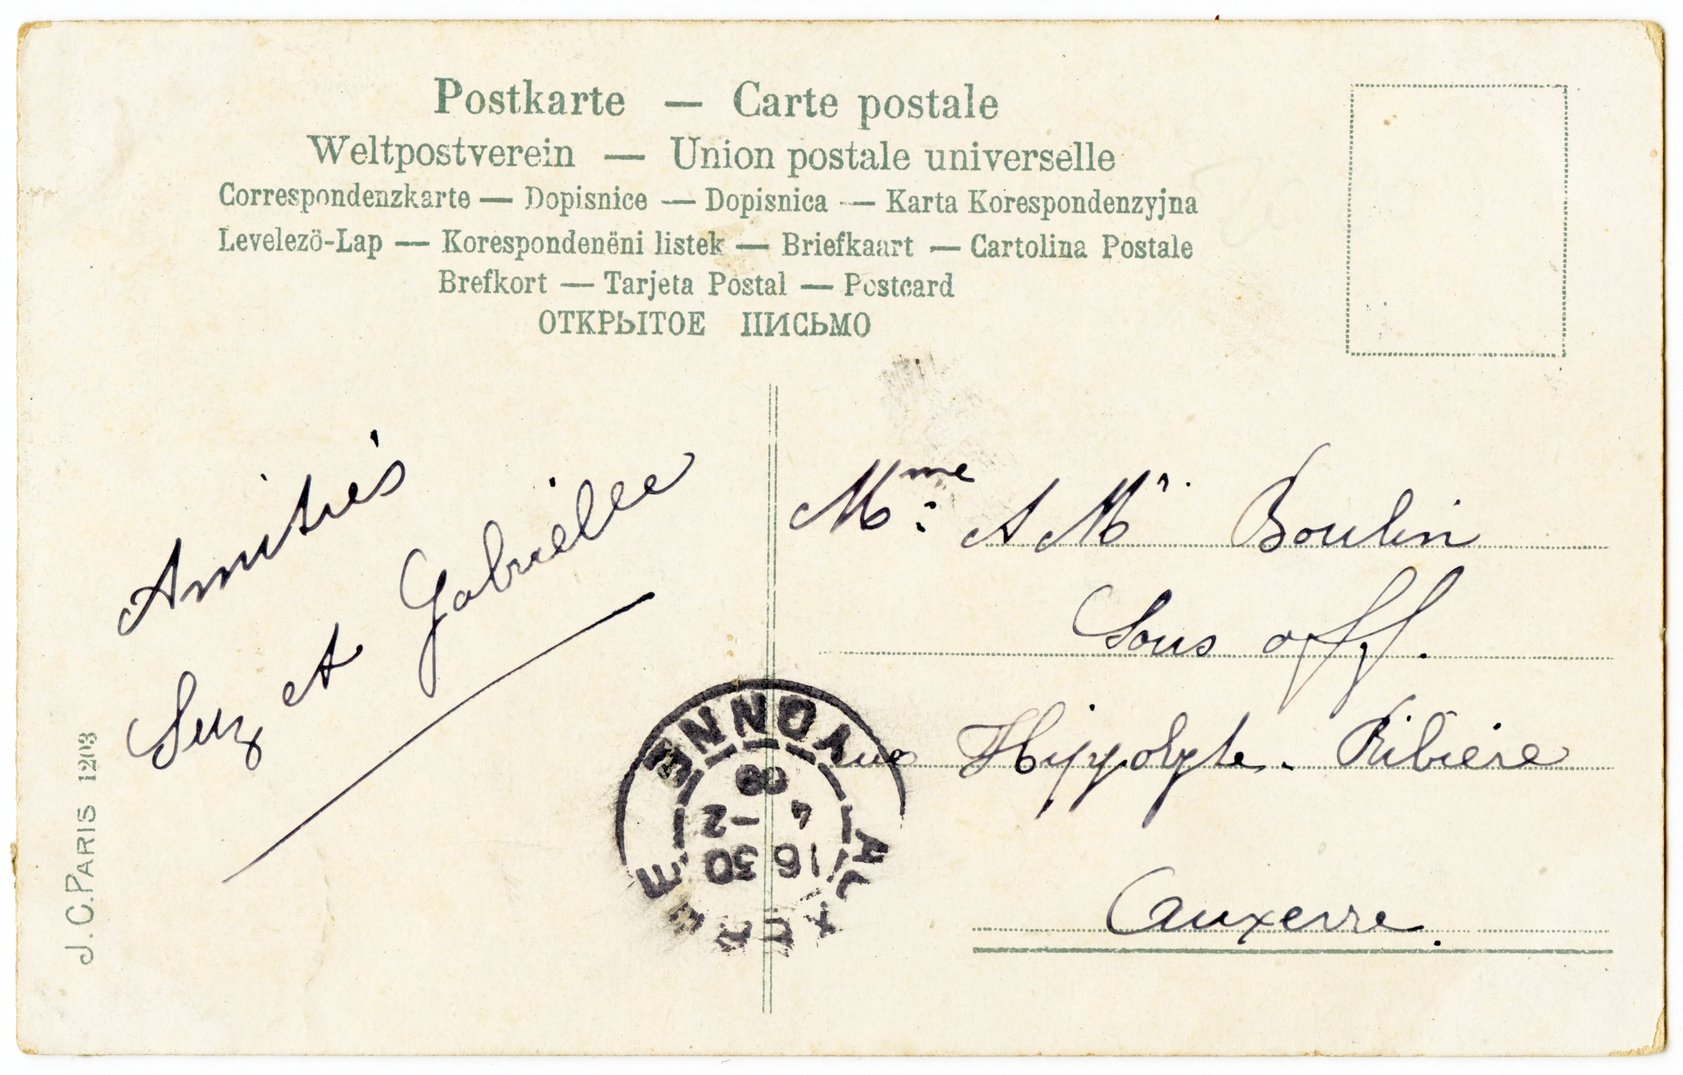 Postkarte — Carte postale
Weltpostverein — Union postale universelle
Correspondenzkarte — Dopisnice — Dopisnica — Karta Korespondenzyjna
Levelezö-Lap — Korespondenëni listek — Briefkaart — Cartolina Postale
Brefkort — Tarjeta Postal — Postcard
ОТКРЫТОЕ ПИСЬМО
Amitiés
Suz et Gabrielle
Mme et Mr. Boulin
Sous off.
rue Hippolyte. Ribière
Auxerre.
AUXERRE
16 30
4 -2
08
YONNE
J.C. PARIS 1203